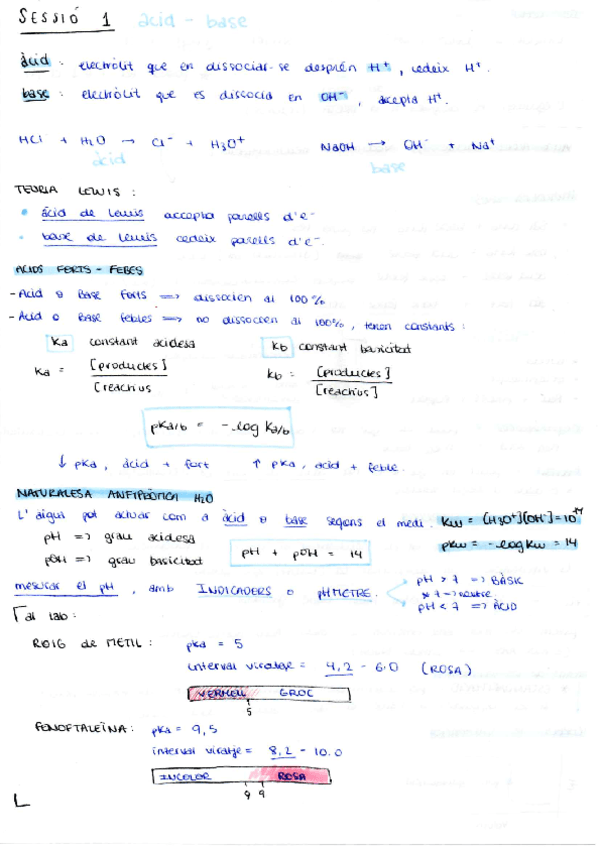 SESSIÓ 1 àcid - base
àcid : electròlit que en dissociar-se desprèn H⁺, cedeix H⁺.
base : electròlit que es dissocia en OH⁻, accepta H⁺.
HCl + H₂O → Cl⁻ + H₃O⁺ NaOH → OH⁻ + Na⁺
àcid base
TEORIA LEWIS :
• àcid de Lewis accepta parells d'e⁻
• base de Lewis cedeix parells d'e⁻.
ACIDS FORTS - FEBLES
- Acid o Base forts => dissocien al 100%
- Acid o base febles => no dissocien al 100%, tenen constants :
Ka constant acidesa Kb constant basicitat
Ka = [productes] / [reactius Kb = [productes] / [reactius]
pKa/b = -log Ka/b
↓ pKa, àcid + fort ↑ pKa, acid + feble.
NATURALESA ANFIPRÒTICA H₂O
L'aigua pot actuar com a àcid o base segons el medi. Kw = [H₃O⁺][OH⁻] = 10⁻¹⁴
pH => grau acidesa pKw = -log Kw = 14
pOH => grau basicitat pH + pOH = 14
mesurar el pH, amb INDICADERS o pHMETRE. pH > 7 => BÀSIC
7 -> neutre
pH < 7 => ÀCID
al lab:
ROIG de METIL : pKa = 5
interval viratge = 4,2 - 6.0 (ROSA)
VERMELL GROC
5
FENOFTALEÏNA : pKa = 9,5
interval viratje = 8,2 - 10.0
INCOLOR ROSA
9 9